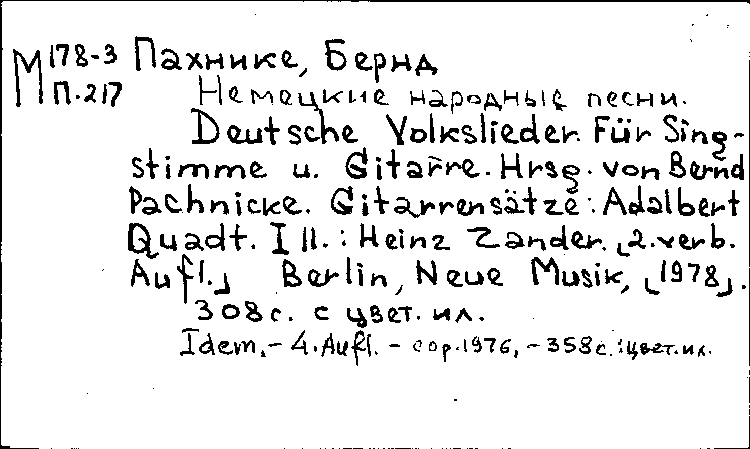 М 178-3 Пахнике, Бернд
П.217 Немецкие народные песни.
Deutsche Volkslieder. Für Sing-
stimme u. Gitarre. Hrsg. von Bernd
Pachnicke. Gitarrensätze: Adalbert
Quadt. Ill.: Heinz Zander. [2. verb.
Aufl.] Berlin, Neue Musik, [1978].
308с. с цвет. ил.
Idem. - 4. Aufl. - cop. 1976, - 358с.: цвет. ил.